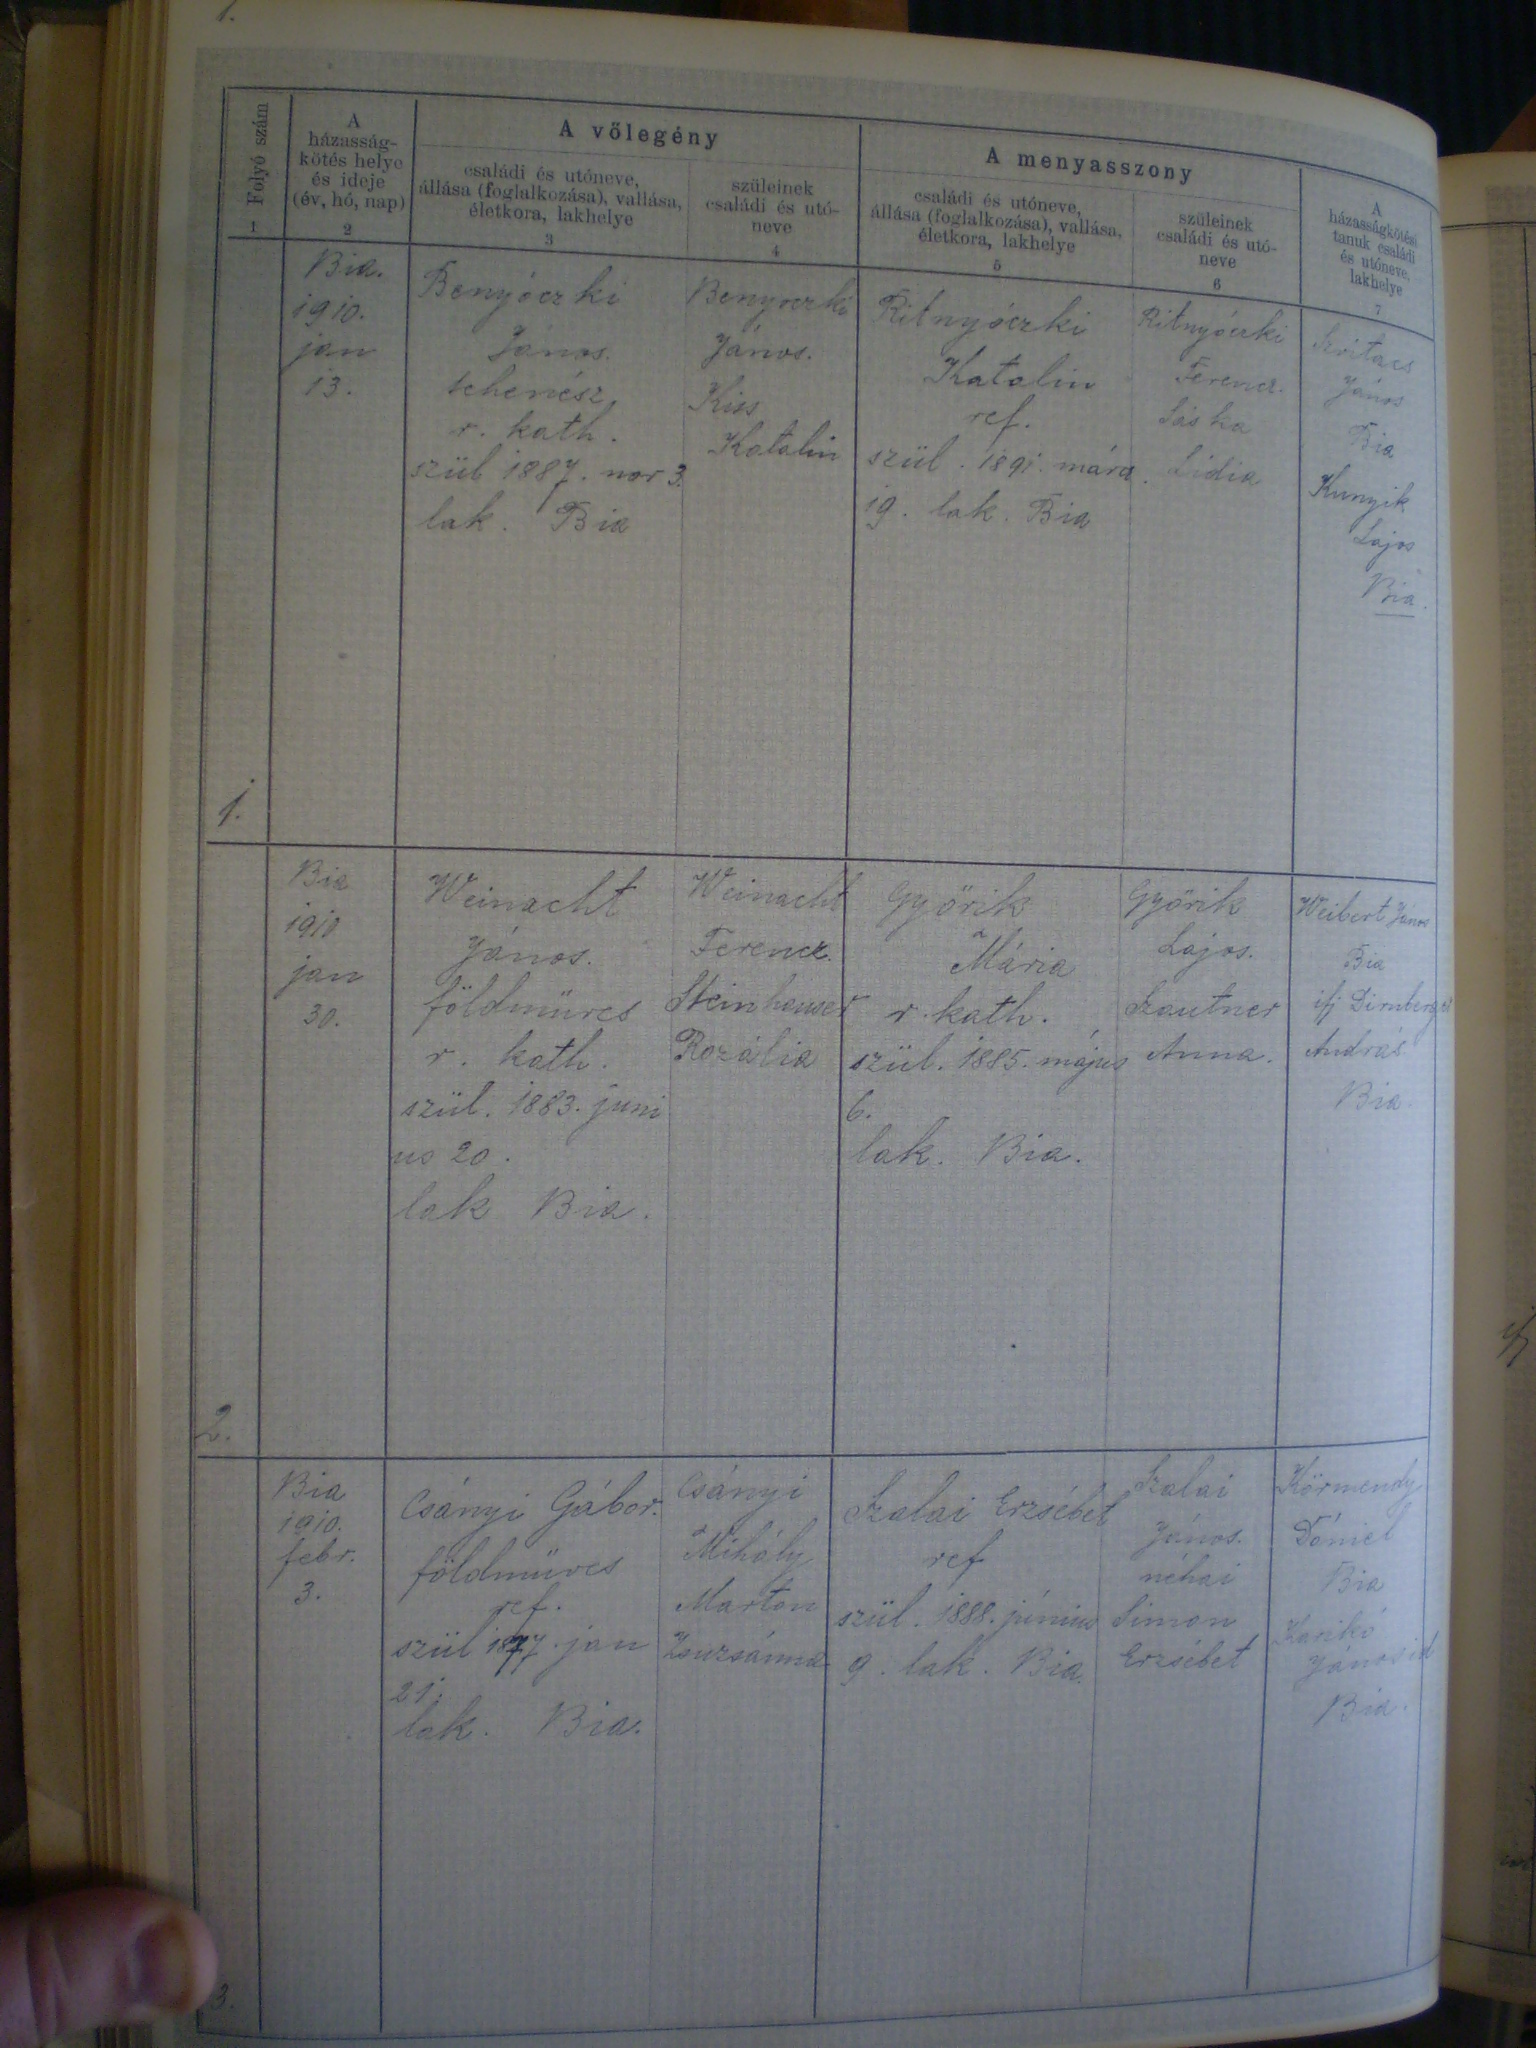 1.
Folyó szám
1
A
házasság-
kötés helye
és ideje
(év, hó, nap)
2
A vőlegény
családi és utóneve,
állása (foglalkozása), vallása,
életkora, lakhelye
3
szüleinek
családi és utó-
neve
4
A menyasszony
családi és utóneve,
állása (foglalkozása), vallása,
életkora, lakhelye
5
szüleinek
családi és utó-
neve
6
A
házasságkötési
tanuk családi
és utóneve,
lakhelye
7
1.
Bia.
1910.
jan
13.
Benyóczki
János.
tehenész
r. kath.
szül 1887. nov 3.
lak. Bia
Benyoczki
János.
Kiss
Katalin
Ritnyóczki
Katalin
ref.
szül. 1891.
19. lak. Bia
Ritnyóczki
Ferencz.
Sáska
Lidia
János
Bia
Kunyik
Lajos
Bia.
2.
Bia
1910
jan
30.
Weinacht
János.
földmüves
r. kath.
szül. 1883. juni
us 20.
lak Bia.
Weinacht
Ferencz.
Steinhauser
Rozália
Györik
Mária
r. kath.
szül. 1885. május
6.
lak. Bia.
Györik
Lajos.
Szautner
Anna.
Weibert János
Bia
ifj Dirnberger
András
Bia.
3.
Bia
1910.
febr.
3.
Csányi Gábor.
földmüves
ref.
szül 1877. jan
21.
lak. Bia.
Csányi
Mihály
Marton
Zsuzsánna
Szalai Erzsébet
ref
szül. 1888. június
9. lak. Bia.
Szalai
János.
néhai
Simon
Erzsébet
Körmendy
Dániel
Bia
Karikó
János id
Bia.